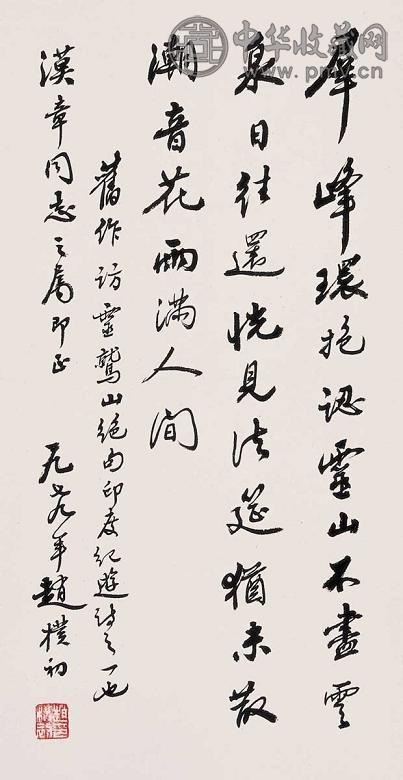 群峰環抱認靈山不盡雲
泉日往還恍見法筵猶未散
潮音花雨滿人间
舊作訪靈鷲山絕句印度紀遊詩之一也
漢章同志之屬即正
一九七九年趙樸初
中华收藏网
www.pmy.cn